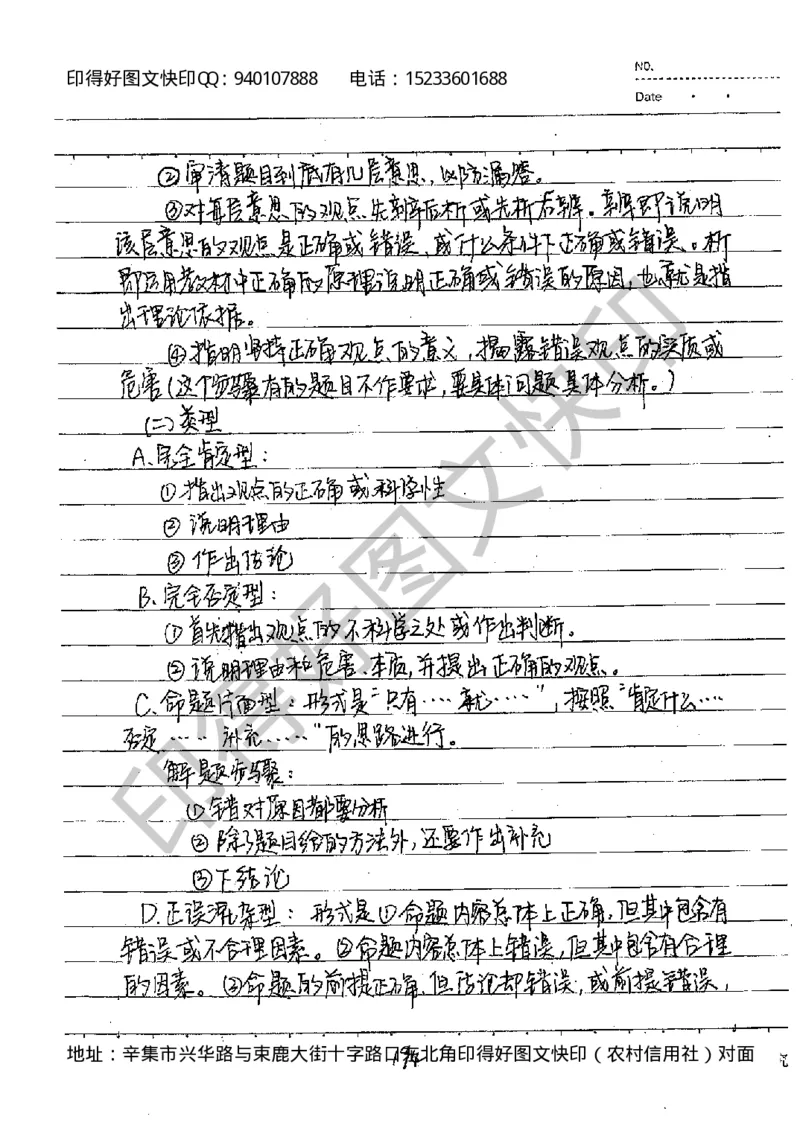 印得好图文快印QQ：940107888 电话：15233601688
NO.
Date
②审清题目到底有几层意思，以防漏答。
③对每层意思的观点先辨后析或先析后辨。辨即说明
该层意思的观点是正确或错误，或什么条件下正确或错误。析
即运用教材中正确的原理说明正确或错误的原因，也就是指
出理论依据。
④指明坚持正确观点的意义，揭露错误观点的实质或
危害（这个步骤有的题目不作要求，要具体问题具体分析。）
(二)类型
A.完全肯定型：
①指出观点的正确或科学性
②说明理由
③作出结论
B.完全否定型：
①首先指出观点的不科学之处或作出判断。
②说明理由和危害、本质，并提出正确的观点。
C.命题片面型：形式是“只有……就……”，按照“肯定什么……
否定……补充……”的思路进行。
解题步骤：
①错对原因都要分析
②除了题目给的方法外，还要作出补充
③下结论
D.正误混杂型：形式是①命题内容总体上正确，但其中包含有
错误或不合理因素。②命题内容总体上错误，但其中包含有合理
的因素。③命题的前提正确，但结论却错误，或前提错误，
印得好图文快印
地址：辛集市兴华路与束鹿大街十字路口东北角印得好图文快印（农村信用社）对面